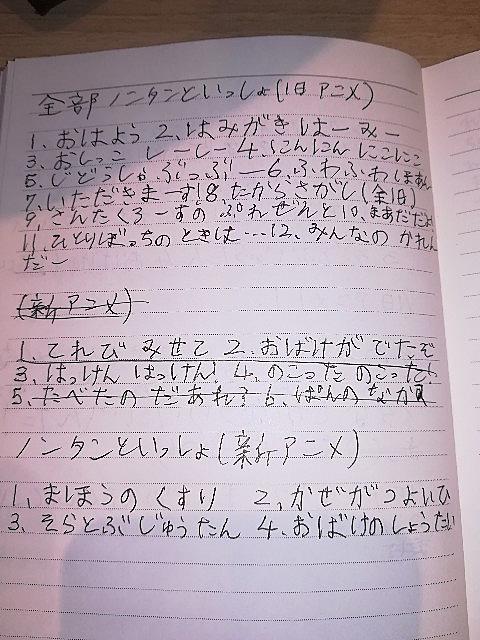 全部ノンタンといっしょ(旧アニメ)
1、おはよう 2、はみがき はーみー
3、おしっこ しーしー 4、にんにん にこにこ
5、じどうしゃ ぶっぶー 6、ふわふわ しまあん
7、いただきまーす! 8、たからさがし(全旧)
9、さんたくろーすの ぷれぜんと 10、まあだだよ
11、ひとりぼっちの ときは… 12、みんなの かれん
だー
(新アニメ)
1、てれび みせて 2、おばけが でたぞ
3、はっけん はっけん! 4、のこった のこった!
5、たべたの だあれ? 6、ぱんの なか
ノンタンといっしょ(新アニメ)
1、まほうの くすり 2、かぜが つよい ひ
3、そらとぶ じゅうたん 4、おばけの しょうたい